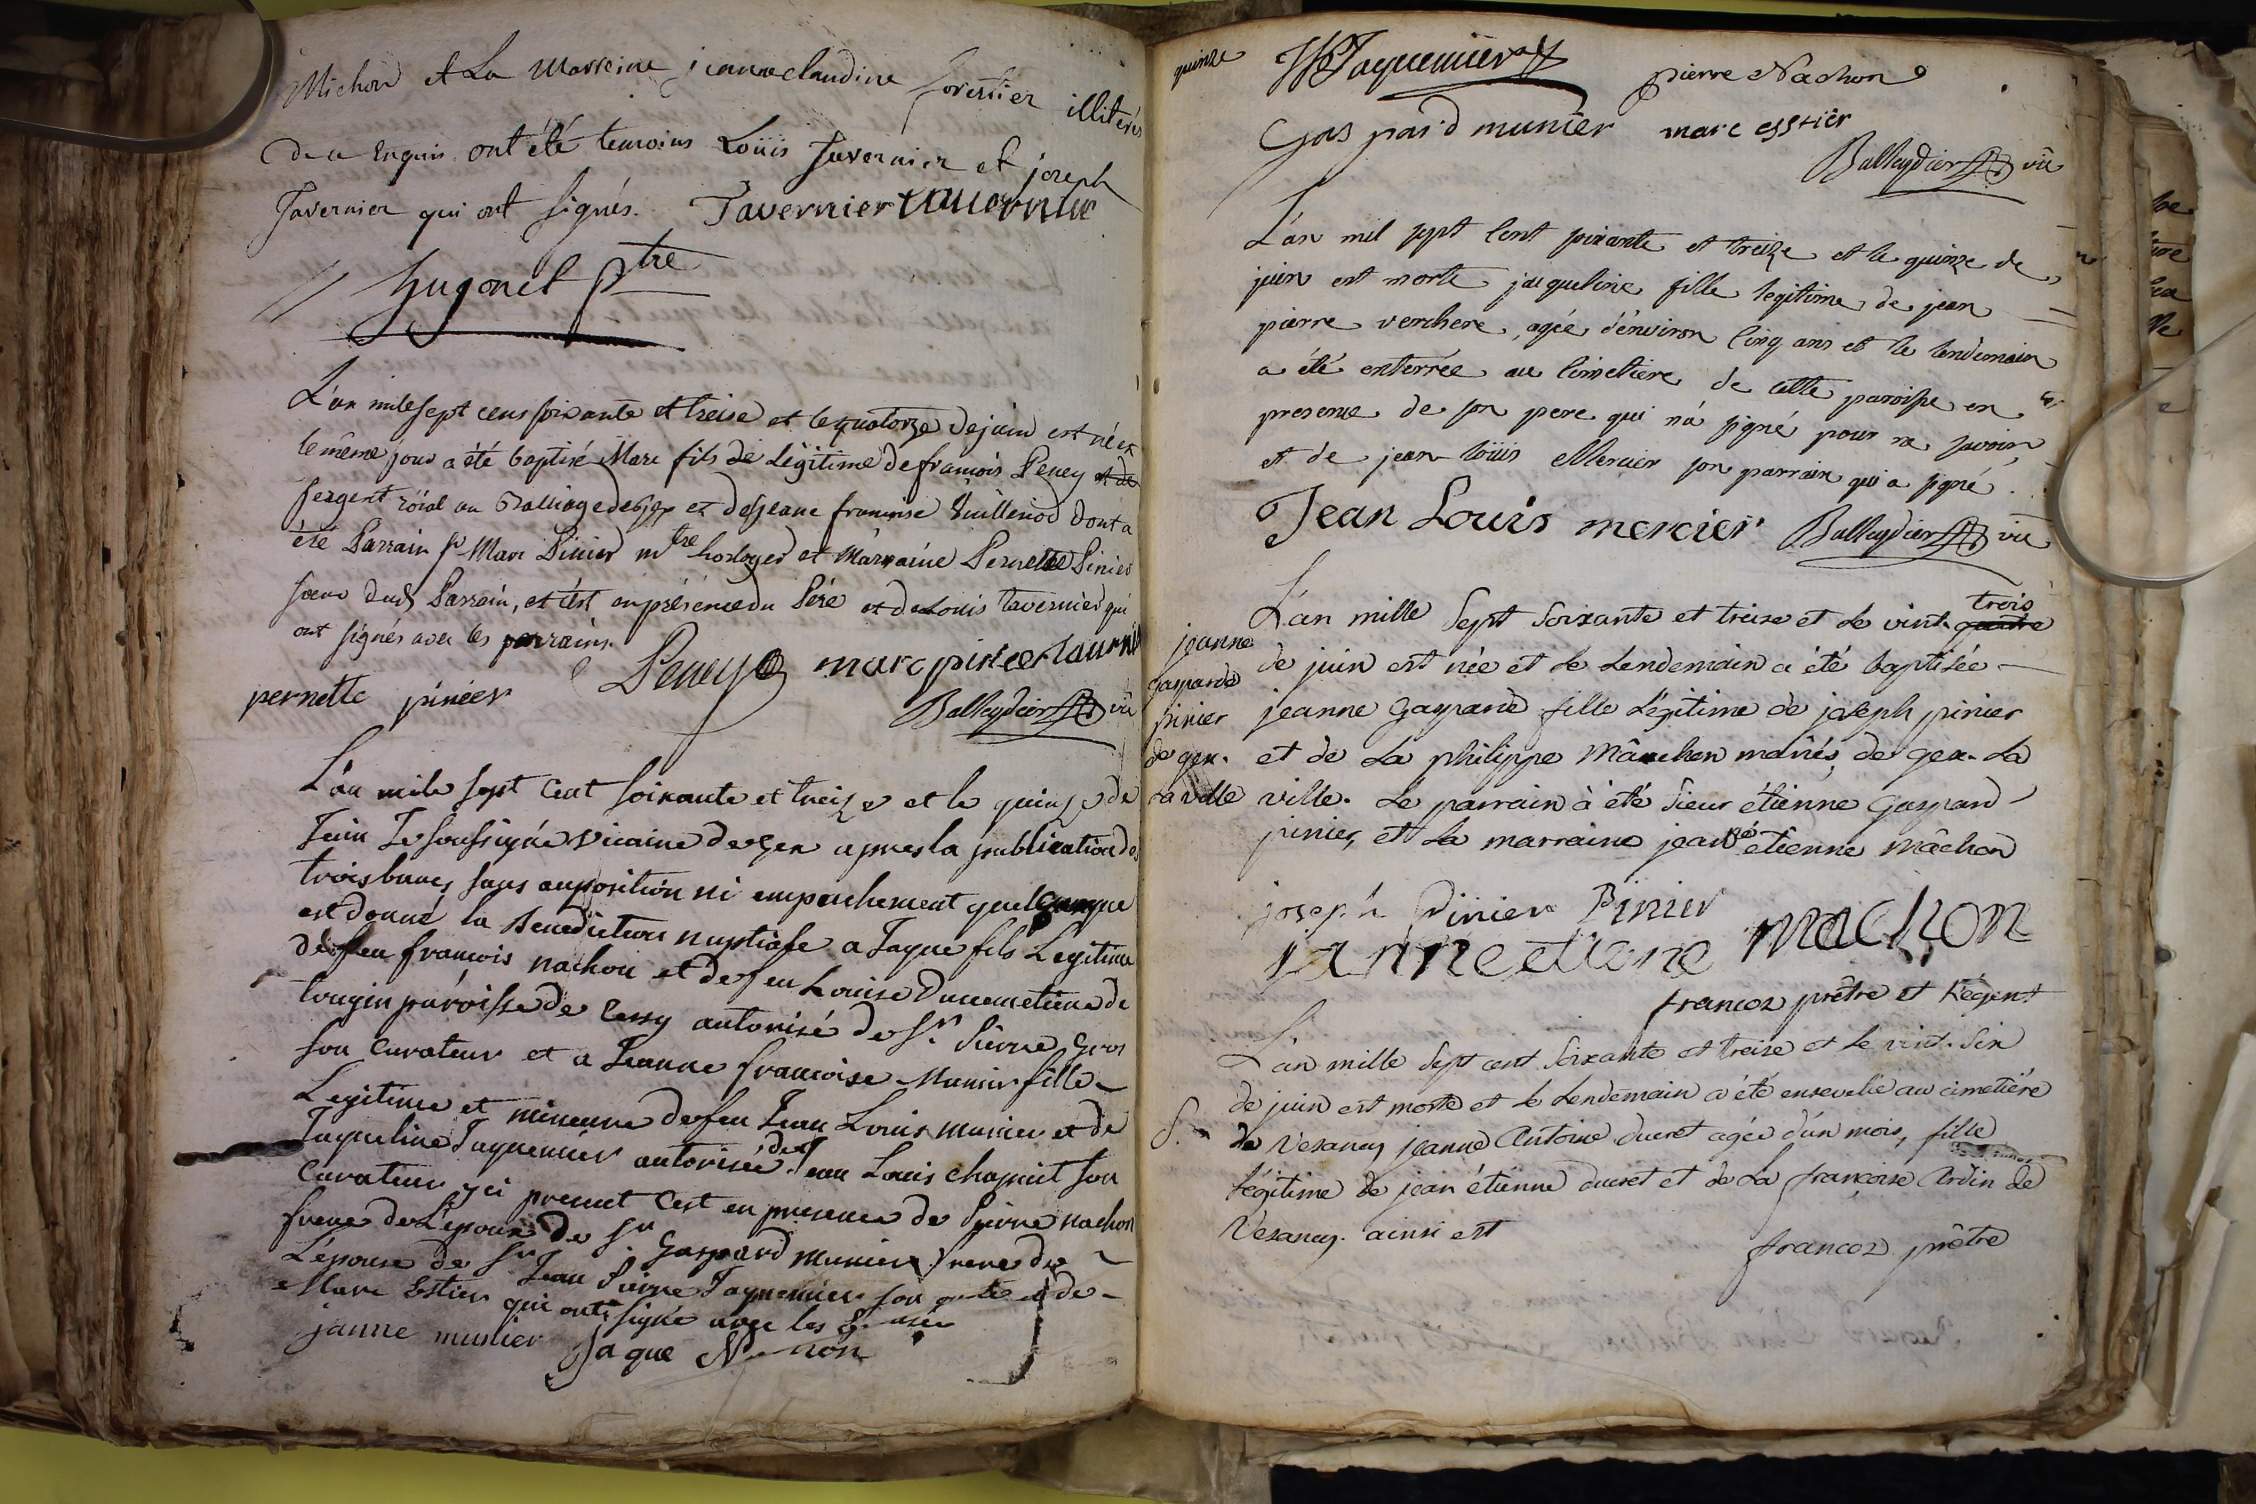 Michon et La Marreine jeanne claudine forestier illiterés
de ce enquis ont été temoins Loüis Tavernier et joseph
Tavernier qui ont signés. Tavernier tavernier
hugonet ptre
L'an mile sept cens soixante et treise et le quatorze de juin est né et
le même jour a été baptisé Marc fils de Légitime de francois Peney et de
sergent roïal au Balliage de Gex et de Jeane francoise Vuillenod dont a
été Parrain sr Marc Pinier mtre horloger et Marraine Pernette Pinier
soeur dudt Parrain, et c'est en présence du Pére et de Louis tavernier qui
ont signés avec les parrains.
Peney marc pinier tavernier
pernette pinier
Balleydier vic
L'an mile sept cent soixante et treize et le quinze de
Juin Je soussigné vicaire de Gex apres la publication de
trois bancs sans opposition ni empechement quelconque
est donné la Benediction nuptiale a Jaque fils Legitime
de feu francois nachon et de feu Louise Ducimetiere de
tougin paroisse de Cessy autorisé de Sr. Pierre Gros
son curateur et a Jeanne francoise Munier fille
Legitime et mineure de feu Jean Louis Munier et de
Jaqueline Jaquemier autorisée de Jean Louis chapuit son
curateur yci present C'est en presence de Pierre nachon
frere de L'epoux de Sr Gaspard Munier frere de
L'epouse de Sr Jean Pierre Jaquemier son et de
Marc Estier qui ont signé avec les
janne munier Jaque Nachon
quinze JPJaquemier pierre Nachon
Gaspard munier marc esstier
Balleydier vic
L'an mil sept Cent soixante et treize et le quinze de
juin est morte jacqueline fille legitime de jean
pierre verchere, agée d'environ Cinq ans et le lendemain
a été enterrée au Cimetiere de cette paroisse en
presence de son pere qui n'a signé pour ne savoir
et de jean loüis Mercier son parrain qui a signé.
Jean Louis mercier Balleydier vic
jeanne
gasparde
pinier
de gex.
la ville
L'an mille Sept Soixante et treize et Le vint quatre trois
de juin est née et Le Lendemain a été baptisée
jeanne Gaspard fille Légitime de joseph pinier
et de La philippe Mâchon mariés de gex. La
ville. Le parrain à été Sieur étienne Gaspard
pinier, et La marraine jeanne étienne Mâchon
joseph Pinier Pinier
janne etiene machon
francoz prêtre et Régent
L'an mille Sept cent Soixante et treize et Le vint. Six
de juin est morte et Le Lendemain a été ensevelie au cimetiére
S. de Vesancy jeanne Antoine ducret agée d'un mois, fille
Légitime de jean étienne ducret et de La françoise Ardin de
Vesancy. ainsi est
francoz prêtre